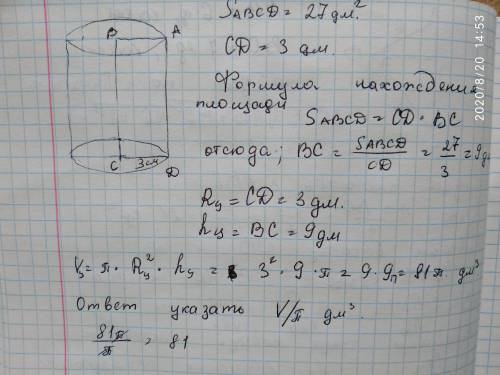 S_ABCD = 27 дм²
B A
CD = 3 дм.
Формула нахождения
площади
S_ABCD = CD · BC
отсюда; BC = S_ABCD / CD = 27 / 3 = 9 д
C 3см D
R_ц = CD = 3 дм.
h_ц = BC = 9 дм
V_ц = π · R_ц² · h_ц = 3² · 9 · π = 9 · 9π = 81π дм³
Ответ указать V/π дм³
81π / π = 81
2020/8/20 14:53